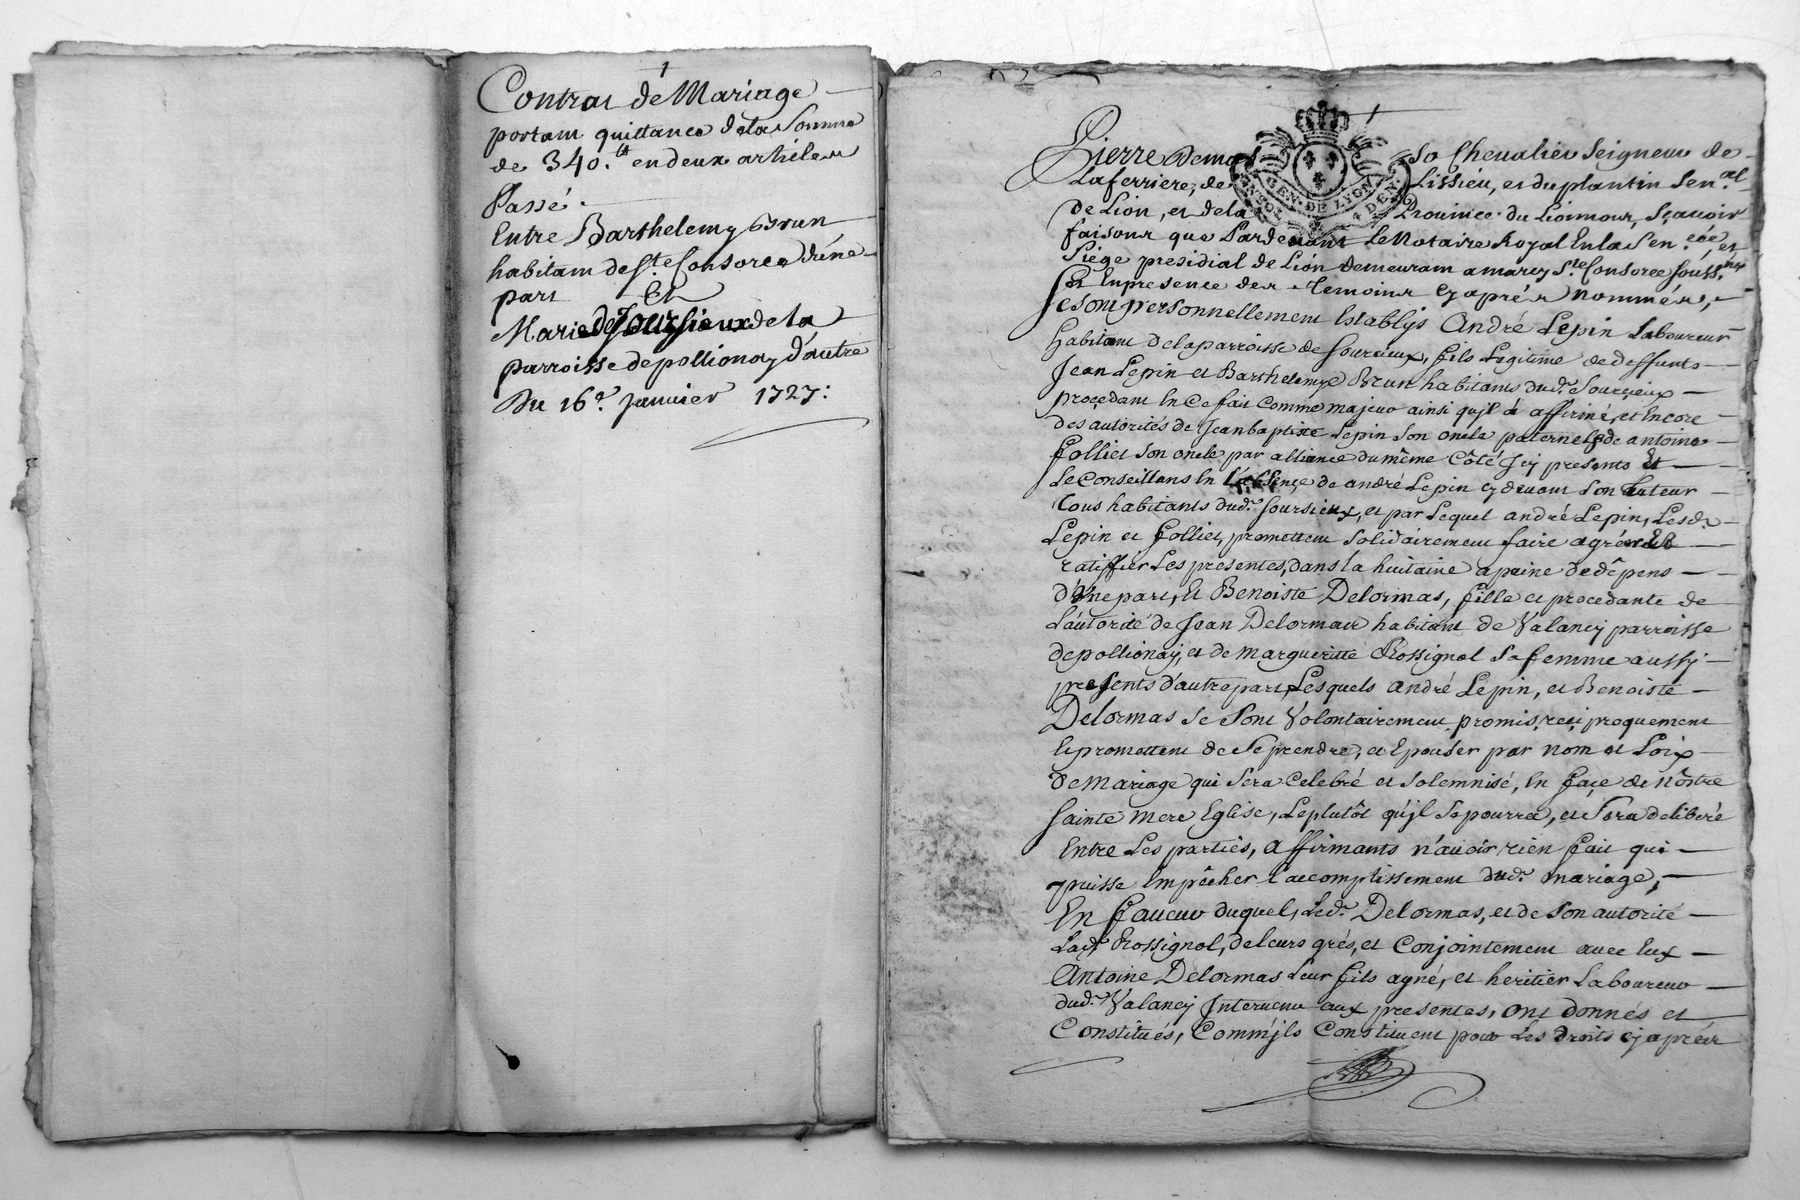 1
Contrat de Mariage
portant quittance dela Somme
de 340.lt en deux articles
Passé.
Entre Barthelemy Brun
habitant de S.te Consorce d'une
part Et
Marie de la
parroisse depollionay d'autre
Du 16.e Janvier 1727:
1
Pierre Demas so Chevalier Seigneur de
Laferriere, de Lissieu, et duplantin Sen.al
de Lion, et dela Province du Lionnois, sçavoir
GEN. DE LYON
faisons que Pardevant Le Notaire Royal En la Sen.cée, et
Siege presidial de Lion demeurant a marcy S.te Consorce Souss.né
Et En presence des Temoins cy aprés nommés,
se sont personnellement Establys André Lepin Laboureur
habitant de la parroisse de Sourcieux, fils Legitime de deffunts
Jean Lepin et Barthelemye Brun habitants dud.t Sourcieux
procedant En ce fait comme majeur ainsi qu'jl á affirmé, et Encore
des autorités de Jean baptiste Lepin son oncle paternel, de antoine
Folliet son oncle par alliance du même Côté Jcy presents Et
Le Conseillans En L'absence de andré Lepin cy devant son tuteur
tous habitants dud.t Soursieux, et par Lequel andré Lepin, Lesd.s
Lepin et Folliet, promettent solidairement faire agréer Et
ratiffier Les presentes, dans la huitaine a peine de dêpens
d'Une part, Et Benoiste Delormas, fille et procedante de
L'autorité de Jean Delormas habitant de Valancy parroisse
depollionay, et de margueritte Rossignol sa femme aussy
presents d'autre part, Lesquels andré Lepin, et Benoiste
Delormas se sont Volontairement promis, reciproquement
Et promettent de se prendre, et Epouser par nom et Loix
de mariage qui sera Celebré et solemnisé, En face de nôstre
Sainte mere Eglise, Leplutôt qu'jl se pourra, et Sera deliberé
Entre Les parties, affirmants n'avoir rien fait qui
puisse Empêcher L'accomplissement dud.t mariage,
En faveur duquel, Led.t Delormas, et de son autorité
Lad.e Rossignol, de leurs grés, et Conjointement avec Eux
Antoine Delormas Leur fils ayné, et heritier Laboureur
dud.t Valancy Intervenu aux presentes, ont donnés et
Constitués, Comm'jls Constituent pour Les droits cy aprés